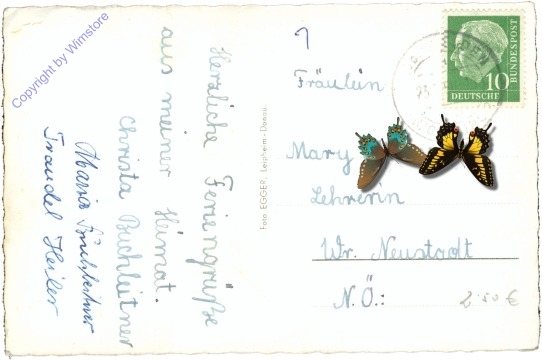 Copyright by Wimstore
Herzliche Feriengrüße
aus meiner Heimat.
Christa Buchleitner
Maria
Traudel Heiler
Foto EGGER, Leipheim - Donau.
10
DEUTSCHE
BUNDESPOST
Fräulein
Mary
Lehrerin
Wr. Neustadt
N.Ö.:
2.50 €